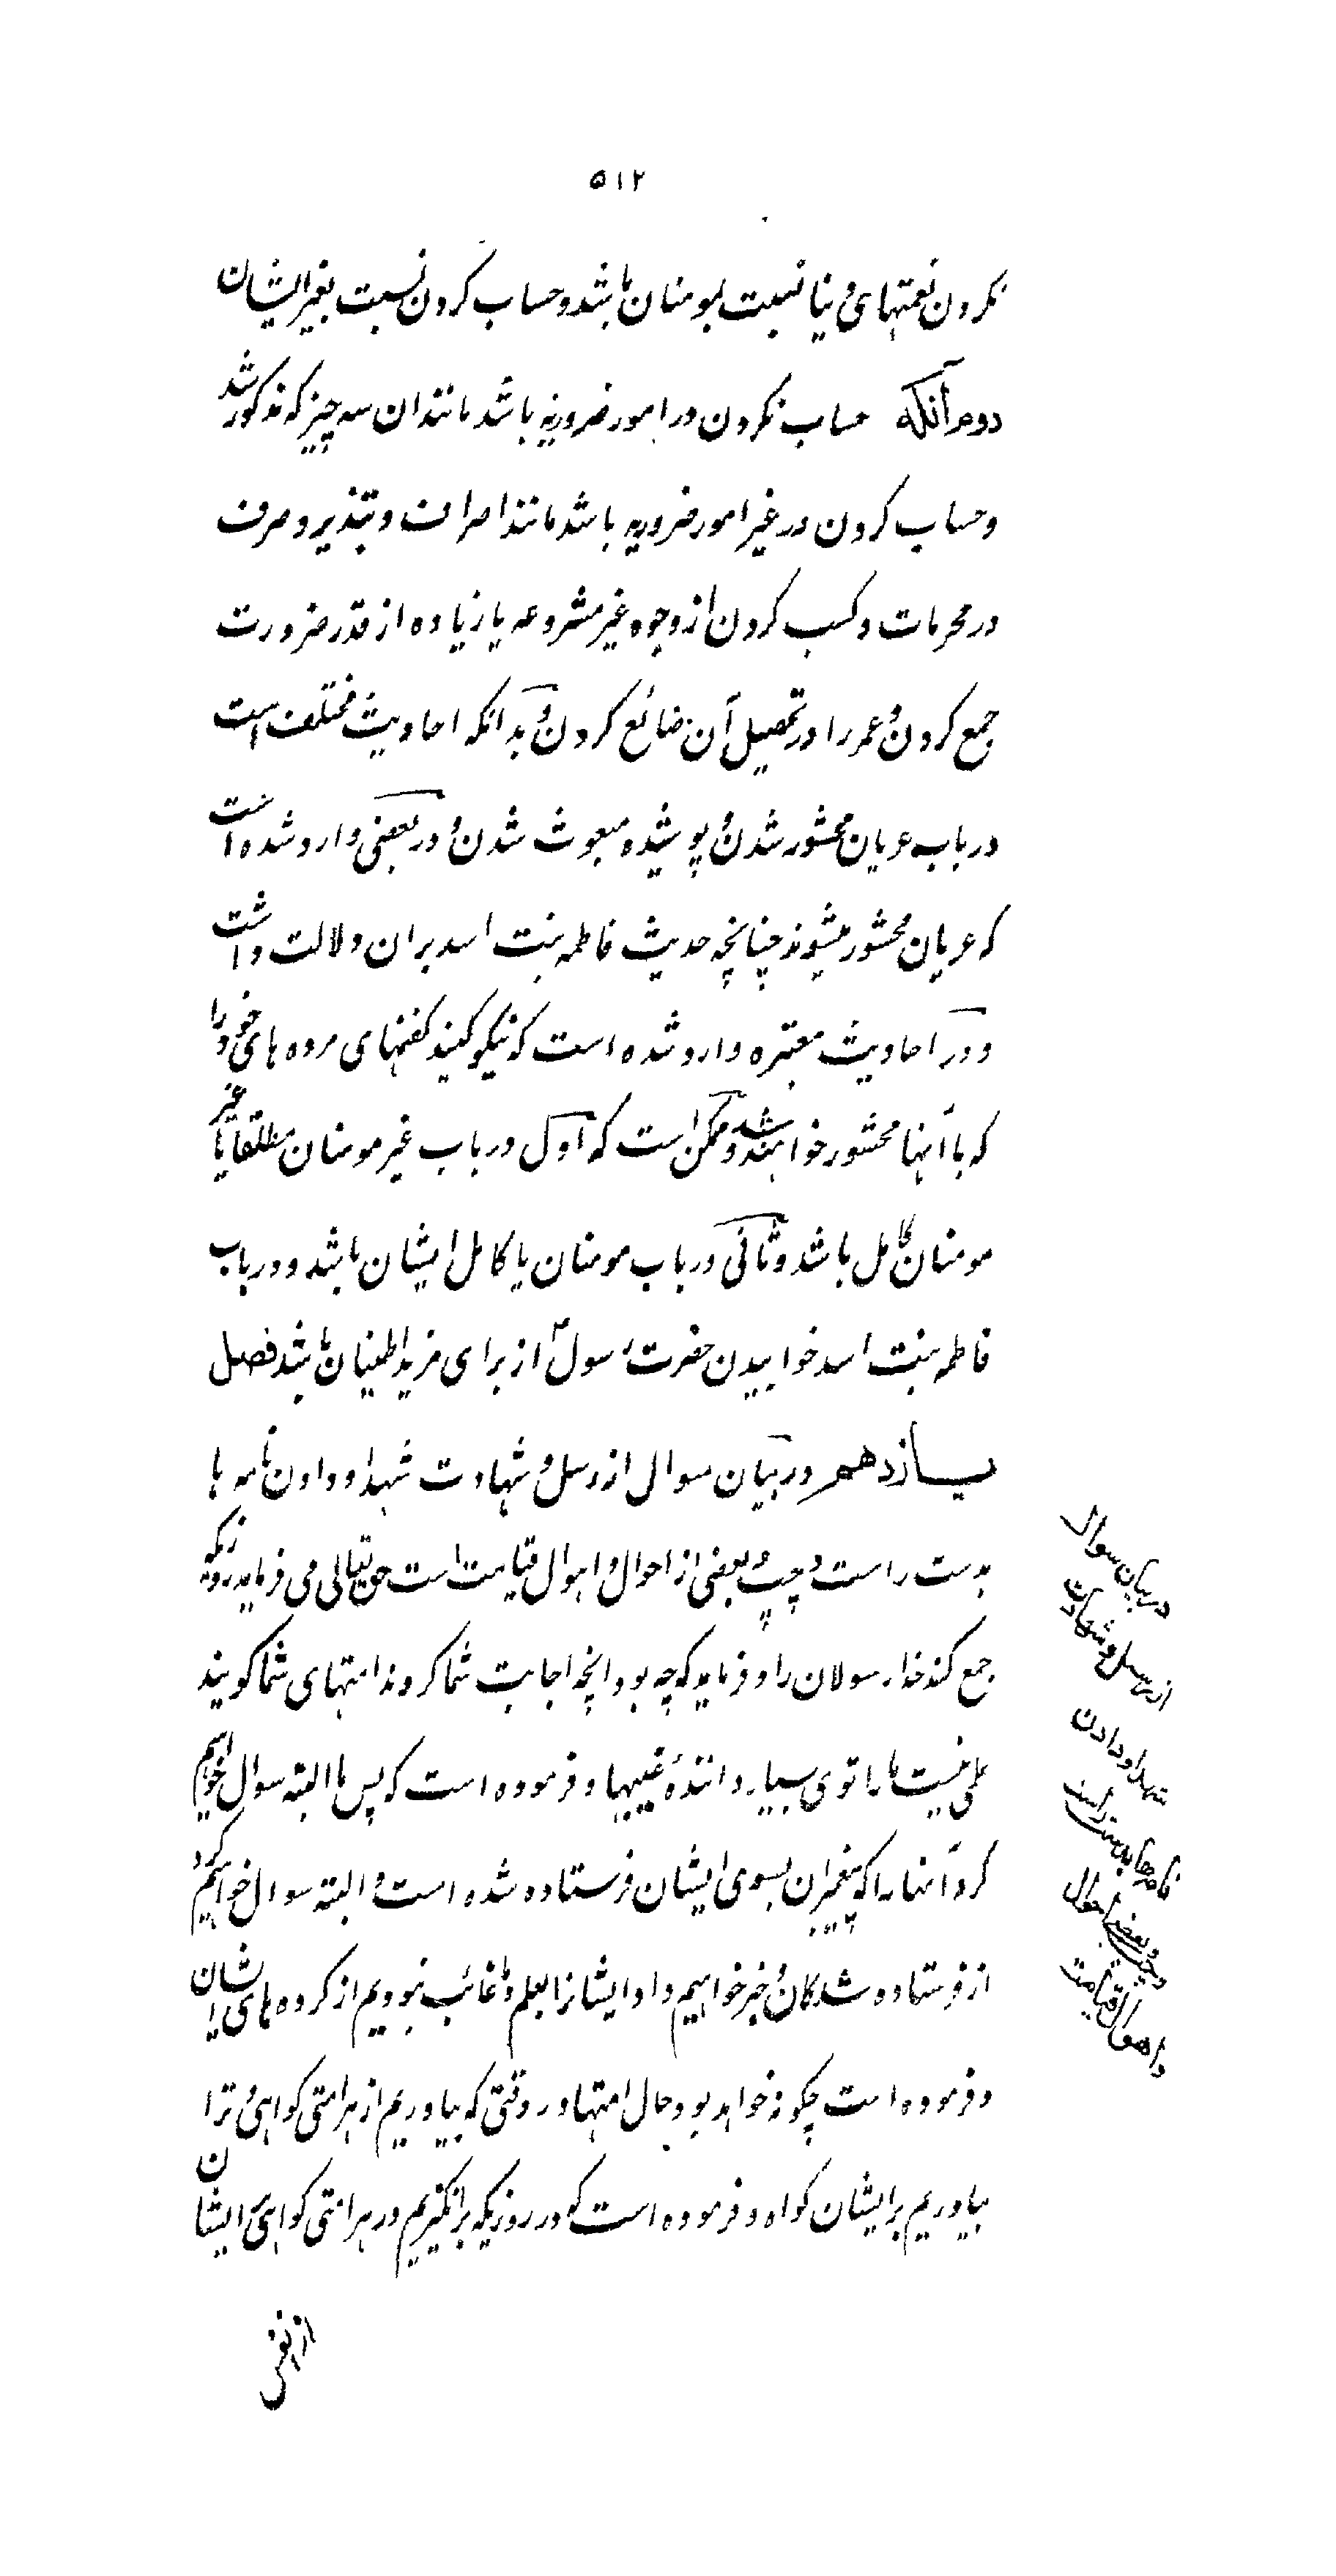 ۵۱۲
نکردن نعمتهای دنیا نسبت بمومنان باشد و حساب کردن نسبت بغیر ایشان
دوم آنکه حساب نکردن در امور ضروریه باشد مانند ان سه چیز که مذکور شد
و حساب کردن در غیر امور ضروریه باشد مانند اسراف و تبذیر و صرف
در محرمات و کسب کردن از وجوه غیر مشروعه یا زیاده از قدر ضرورت
جمع کردن و عمر را در تحصیل آن ضائع کردن و بدانکه احادیث مختلف است
در باب عریان محشور شدن و پوشیده مبعوث شدن و در بعضی وارد شده است
که عریان محشور میشوند چنانچه حدیث فاطمه بنت اسد بران دلالت داشت
و در احادیث معتبره وارد شده است که نیکو کنید کفنهای مرده های خود را
که با آنها محشور خواهند شد و ممکن است که اول در باب غیر مومنان مطلقا یا غیر
مومنان کامل باشد و ثانی در باب مومنان یا کامل ایشان باشد و در باب
فاطمه بنت اسد خوابیدن حضرت رسول ص از برای مزید اطمینان باشد فصل
یازدهم در بیان سوال از رسل و شهادت شهدا و دادن نامه ها
بدست راست و چپ و بعضی از احوال و اهوال قیامت است حق تعالی می فرماید روزیکه
جمع کند خدا رسولان را و فرماید که چه بود انچه اجابت شما کردند امتهای شما گویند
علمی نیست ما را توی بسیار دانندهٔ غیبها و فرموده است که پس ما البته سوال خواهیم
کرد آنها را که پیغمبران بسوی ایشان فرستاده شده است و البته سوال خواهیم کرد
از فرستاده شدگان و خبر خواهیم داد ایشانرا بعلم و ما غائب نبودیم از کرده های ایشان
و فرموده است چگونه خواهد بود حال امتها در وقتی که بیاوریم از هر امتی گواهی و ترا
بیاوریم بر ایشان گواه و فرموده است که در روزیکه برانگیزیم در هر امتی گواهی و ایشان
از نفس
در بیان سوال
از رسل و شهادت
شهدا و دادن
نامه ها بدست راست
و چپ و بعضی احوال
و اهوال قیامت